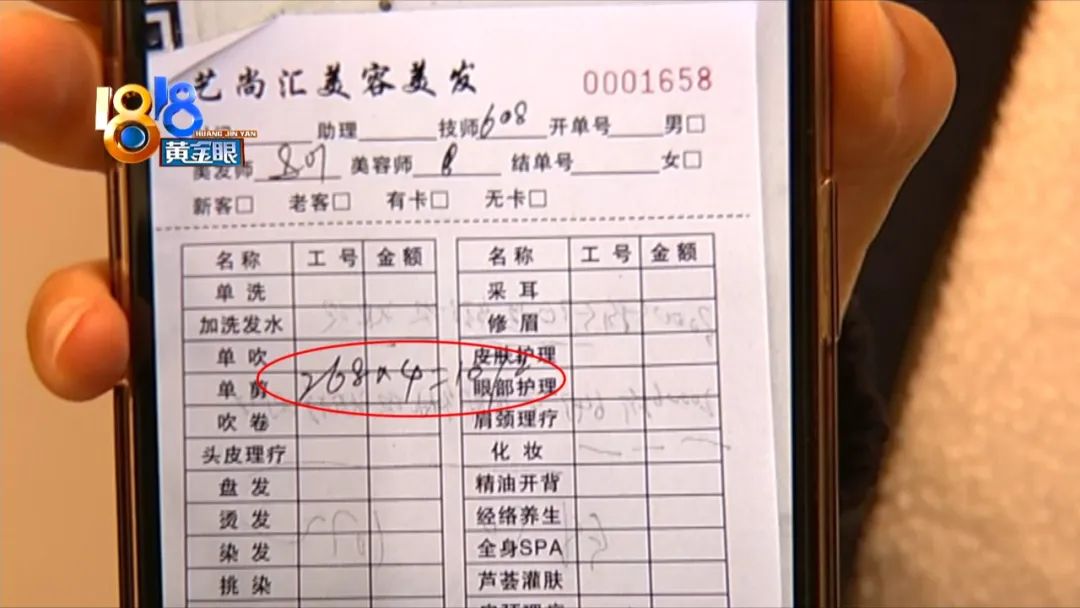 艺尚汇美容美发 0001658
1818
HUANG JIN YAN
黄金眼
助理 技师 608 开单号 男□
美发师 美容师 8 结单号 女□
新客□ 老客□ 有卡□ 无卡□
名称 工号 金额 名称 工号 金额
单洗 采耳
加洗发水 修眉
单吹 皮肤护理
268×4=1072
单剪 眼部护理
吹卷 肩颈理疗
头皮理疗 化妆
盘发 精油开背
烫发 经络养生
染发 全身SPA
挑染 芦荟灌肤